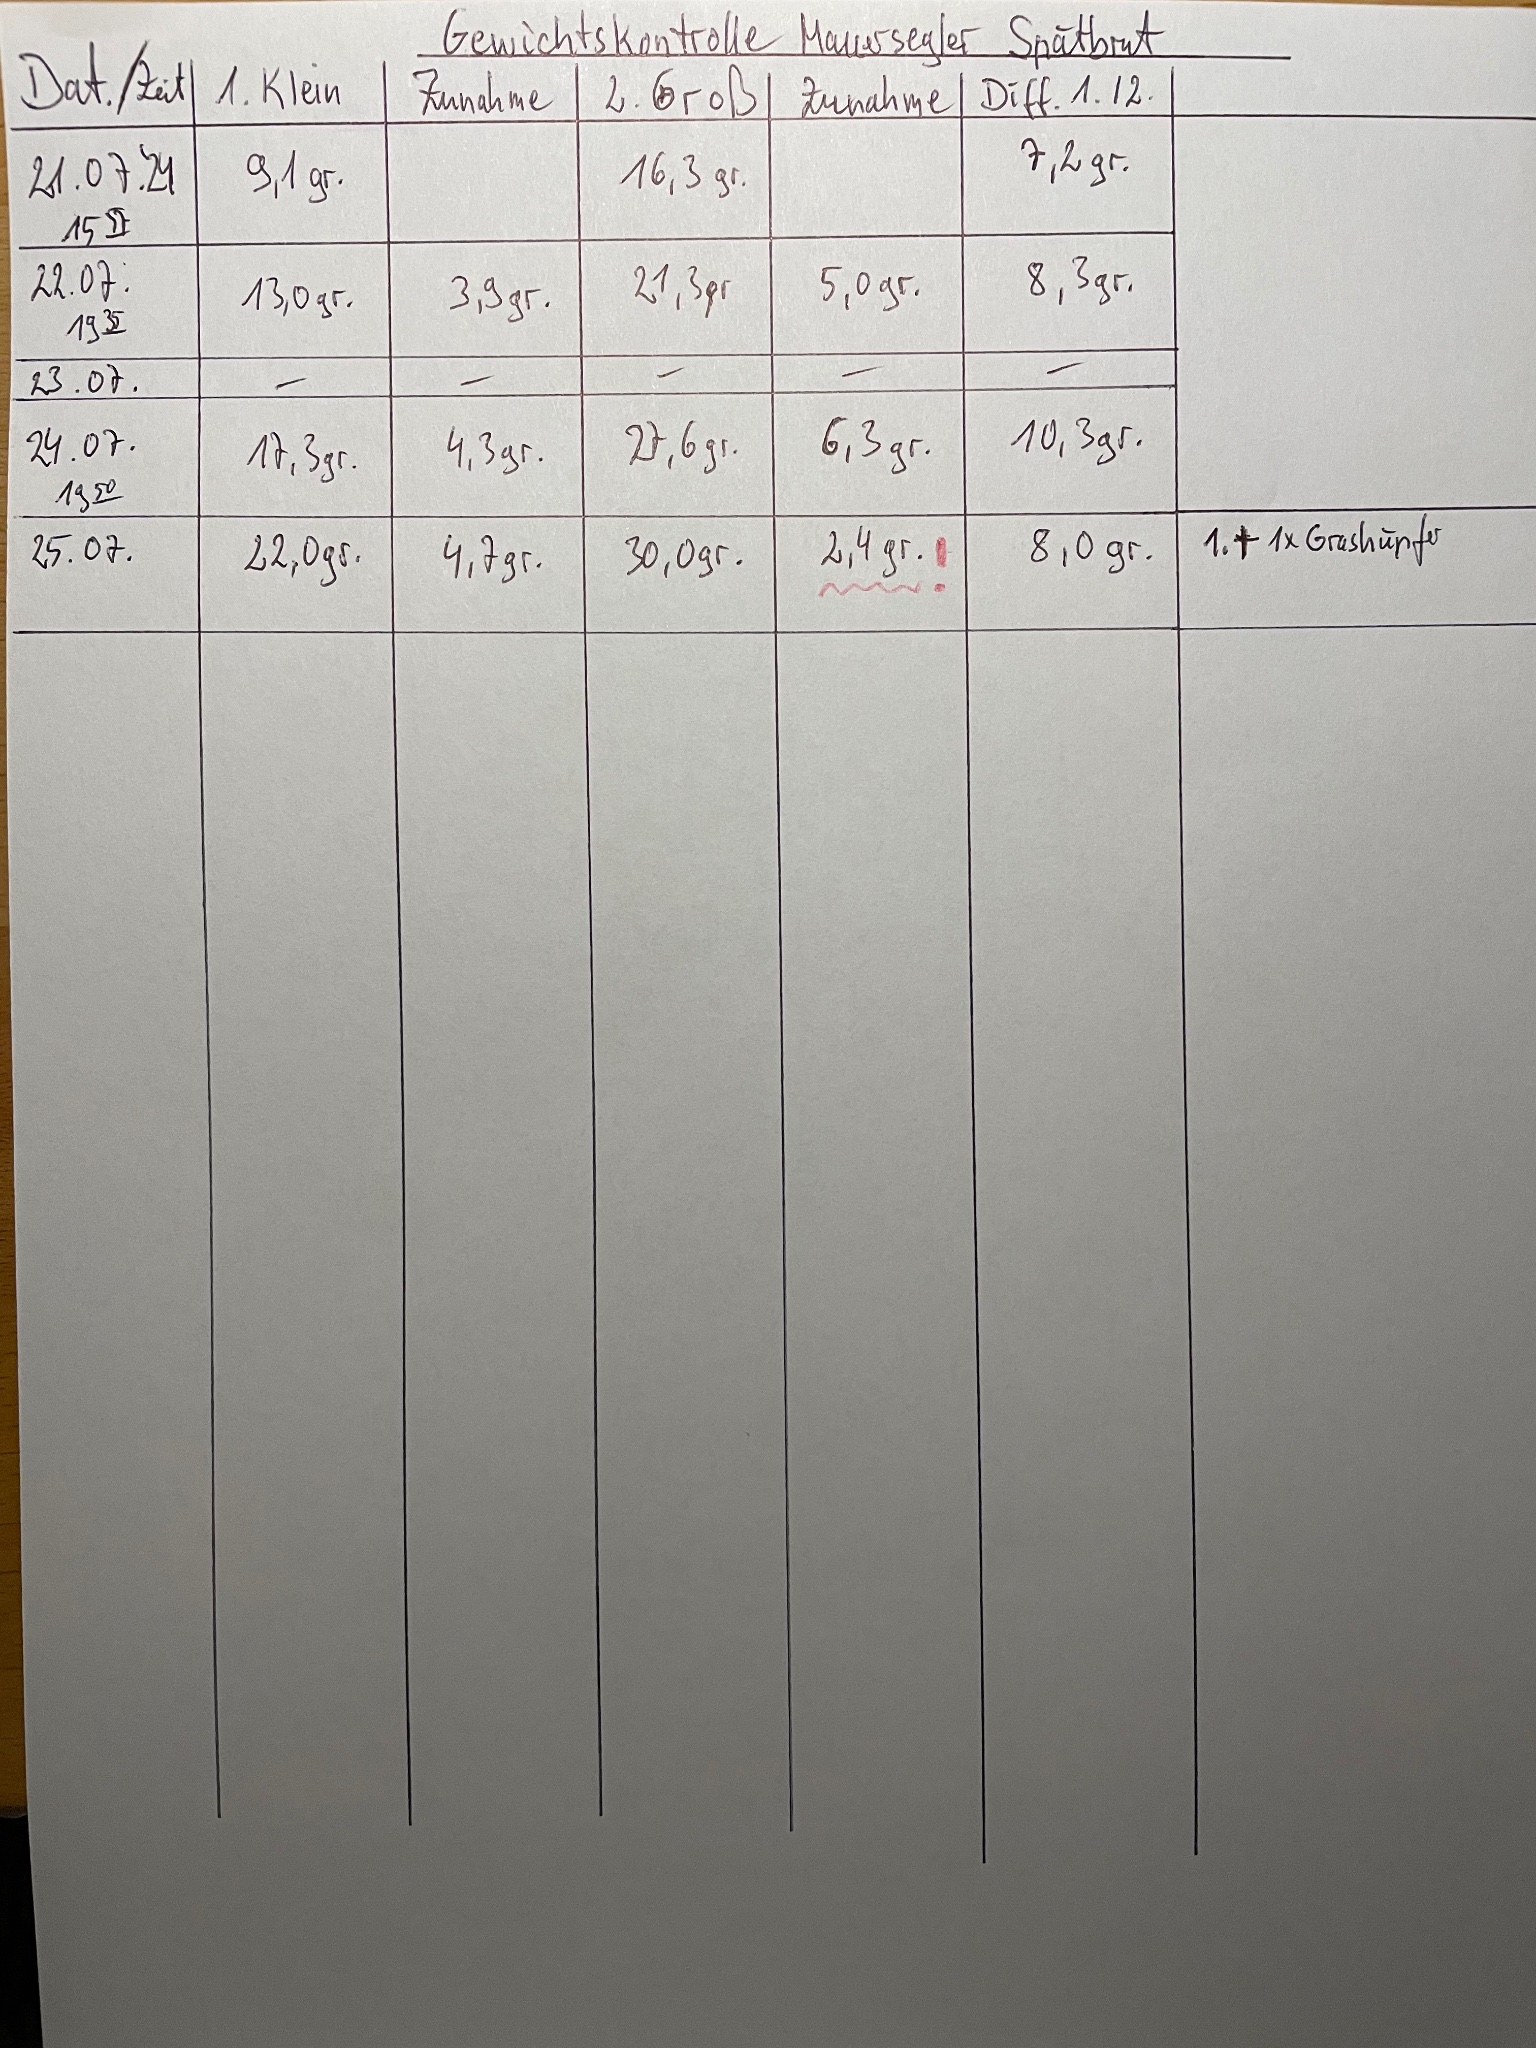 Gewichtskontrolle Mauersegler Spätbrut
Dat./Zeit 1. Klein Zunahme 2. Groß Zunahme Diff. 1./2.
21.07.'24 9,1 gr. 16,3 gr. 7,2 gr.
15
22.07. 13,0 gr. 3,9 gr. 21,3 gr 5,0 gr. 8,3 gr.
19 35
23.07. — — — — —
24.07. 17,3 gr. 4,3 gr. 27,6 gr. 6,3 gr. 10,3 gr.
19 50
25.07. 22,0 gr. 4,7 gr. 30,0 gr. 2,4 gr. ! 8,0 gr. 1. + 1x Grashüpfer